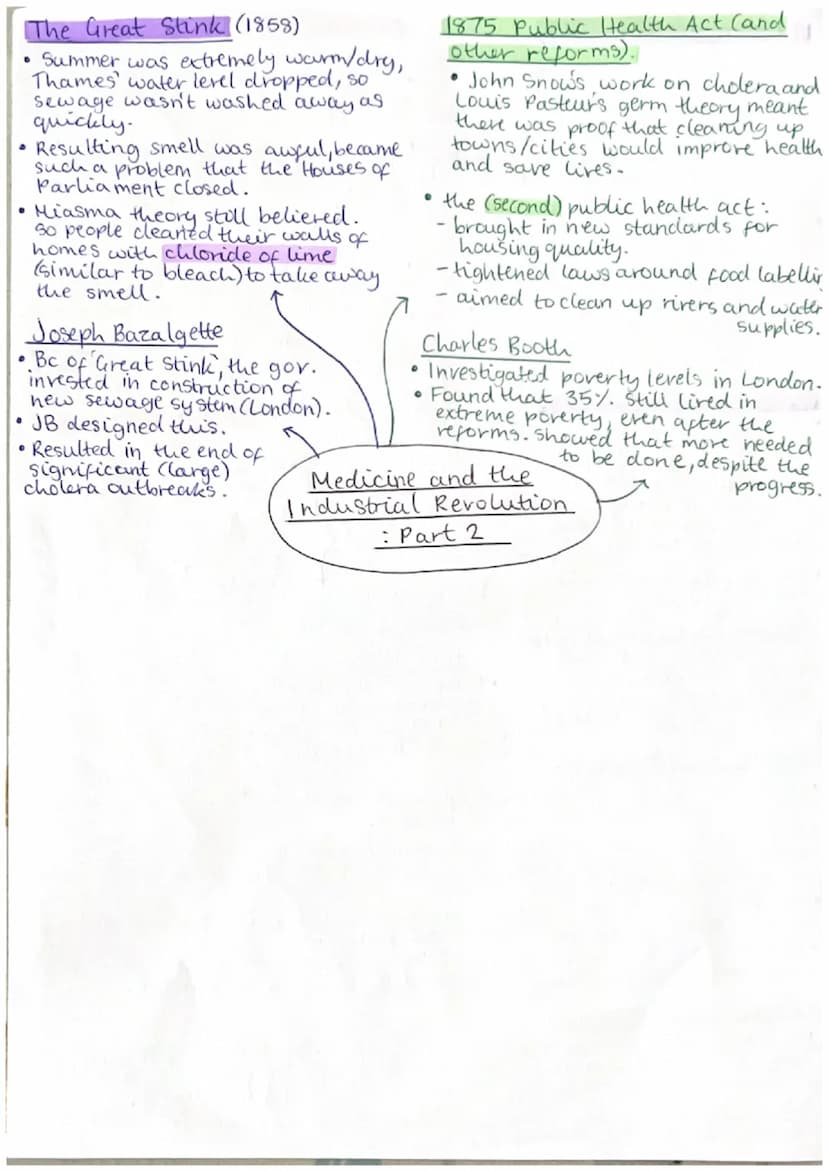 The Great Stink (1858)
• Summer was extremely warm/dry,
Thames' water level dropped, so
sewage wasn't washed away as
quickly.
• Resulting smell was awful, became
such a problem that the Houses of
Parliament closed.
• Miasma theory still believed.
so people cleaned their walls of
homes with chloride of lime
(similar to bleach) to take away
the smell.
Joseph Bazalgette
• Bc of 'Great Stink', the gov.
invested in construction of
new sewage system (London).
• JB designed this.
• Resulted in the end of
significant (large)
cholera outbreaks.
1875 Public Health Act (and
other reforms).
• John Snow's work on cholera and
Louis Pasteur's germ theory meant
there was proof that cleaning up
towns/cities would improve health
and save lives.
• the (second) public health act:
- brought in new standards for
housing quality.
- tightened laws around food labellin
- aimed to clean up rivers and water
supplies.
Charles Booth
• Investigated poverty levels in London.
• Found that 35% still lived in
extreme poverty, even after the
reforms. showed that more needed
to be done, despite the
progress.
Medicine and the
Industrial Revolution
: Part 2